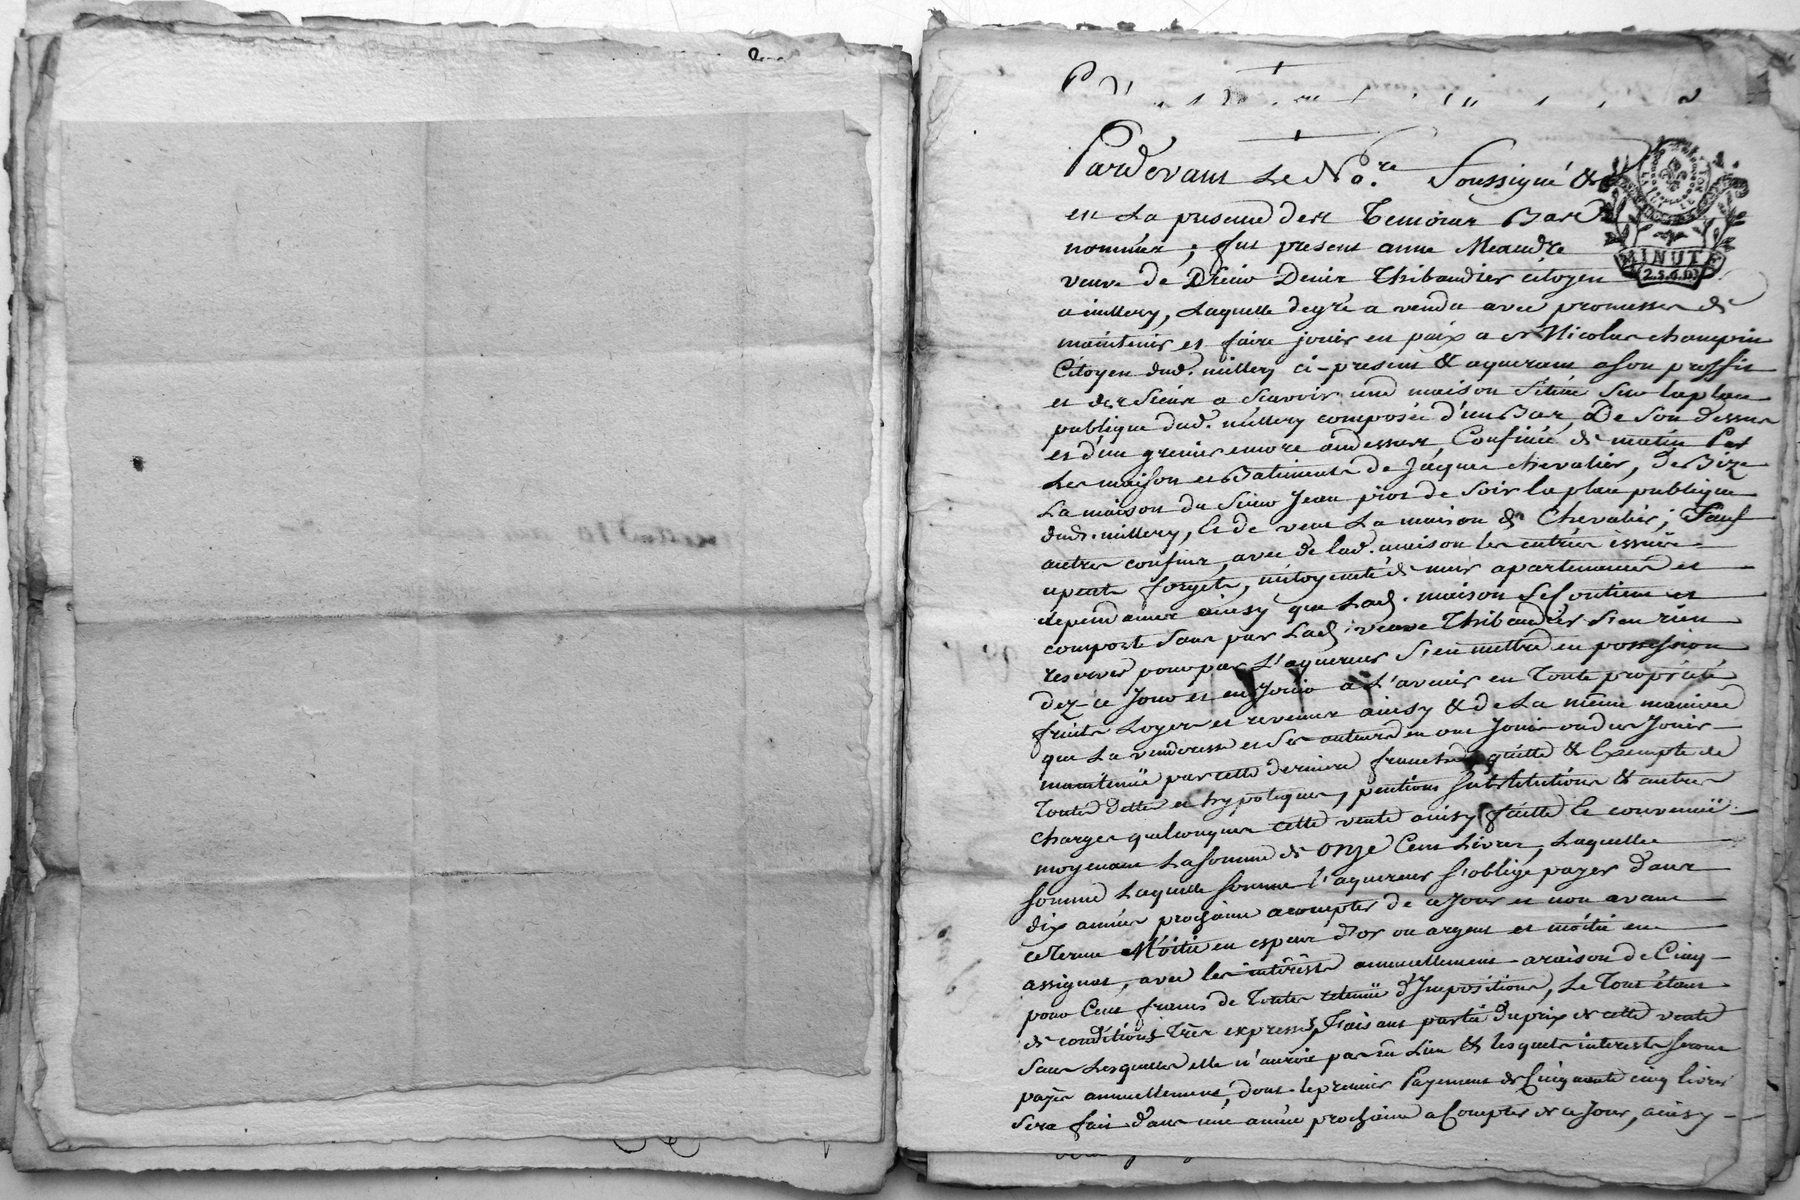 Pardevant Le No.re Soussigné &
en La presence des Temoins Bas
nommés, fut present anne Meaudre
veuve de Denis Thibaudier citoyen
a millery, Laquelle degré a vendu avec promesse de
maintenir et faire jouir en paix a sr Nicolas champin
Citoyen dud. millery ci-present & aquerant a son proffit
et des siens a sçavoir une maison Située Sur la place
publique dud. millery composée d'un Bas, De Son dessus
et d'un grenier encore audessus, Confinée de matin Par
Les maison et Batiments de Jacques chevalier, de Bize
La maison du Sieur Jean piot de Soir la place publique
dud. millery, Et de vent La maison de Chevalier; Sauf
autres confins, avec de lad. maison les entrées issues
apents forgets, mitoyeneté de murs apartenances et
dependances ainsy que Lad. maison Se Contient et
comporte Sans par Lad. veuve Thibaudier S'en rien
reserver pour par L'aquereur S'en mettre en possession
dez-ce Jour et en Jouir a L'avenir en Toute propriété
fruits Loyers et revenus ainsy & de La même maniere
que La venderesse et Ses auteurs en ont Joui ou du Jouir
maintenüe par cette derniere franche quitte & Exempte de
Toutes dettes et hypoteques, pentions Substitutions & autres
charges quelconques cette vente ainsy faitte Et convenüe
moyenant La somme de onze Cent Livres, Laquelle
somme Laquelle somme l'aquereur s'oblige payer dans
dix années prochaine acompter de ce Jour et non avant
ce terme Moitié en espece d'or ou argent et moitié en
assignat, avec les intérêsts annuellement a raison de Cinq
pour Cent francs de Toutes retenüe d'Impositions, Le Tout étant
de conditions Très expresses, faisant partie du prix de cette vente
Sans Lesquelles elle n'auroit pas eü Lieu & lesquels interests seront
payés annuellement, dont le premier Payement de Cinquante cinq livres
Sera fait dans une année prochaine a Compter de ce Jour, ainsy
MINUTE
2.S.6.D.